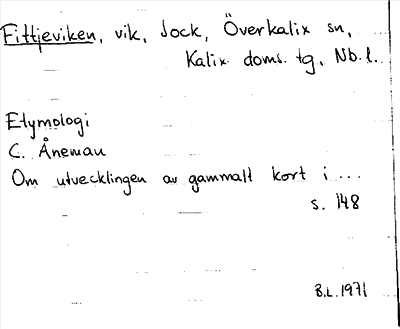 Fittjeviken, vik, Jock, Överkalix sn,
Kalix doms. tg, Nb.l.
Etymologi
C. Åneman
Om utvecklingen av gammalt kort i ...
s. 148
B.L. 1971